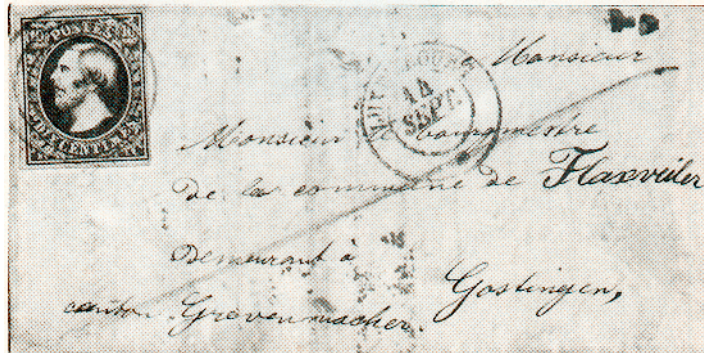 10 POSTES 10
DIX CENTIMES
LUXEMBOURG
14
SEPT.
Monsieur
Monsieur le bourgmestre
de la commune de Flaxweiler
Demeurant à
Gostingen,
canton Grevenmacher.